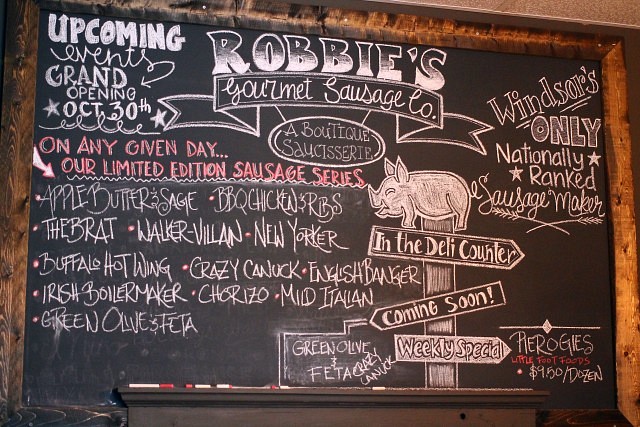 UPCOMING
events
GRAND
OPENING
OCT 30th
ROBBIE'S
Gourmet Sausage Co.
A BOUTIQUE
SAUCISSERIE
Windsor's
ONLY
Nationally
Ranked
Sausage Maker
ON ANY GIVEN DAY...
OUR LIMITED EDITION SAUSAGE SERIES
• APPLE BUTTER & SAGE • BBQ CHICKEN & RIBS
• THE BRAT • WALKER-VILLAN • NEW YORKER
• BUFFALO HOT WING • CRAZY CANUCK • ENGLISH BANGER
• IRISH BOILERMAKER • CHORIZO • MILD ITALIAN
• GREEN OLIVE & FETA
In the Deli Counter
Coming Soon!
Weekly Special
GREEN OLIVE
&
FETA
CRAZY
CANUCK
PIEROGIES
LITTLE FOOT FOODS
• $9.50/DOZEN